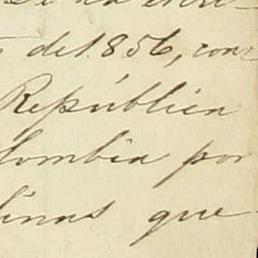 de 1.856, con-
República
lombia por
linas que